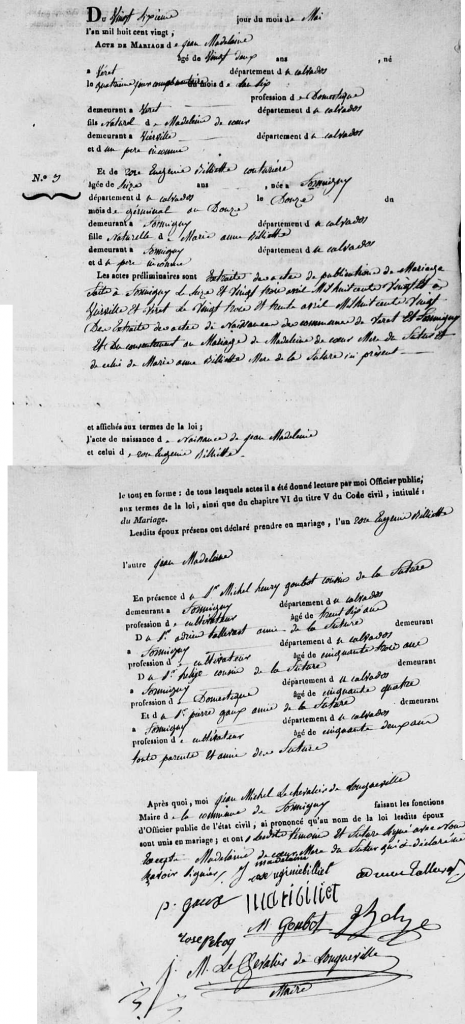 Du Vingt Sixieme jour du mois de Mai
l'an mil huit cent vingt,
Acte de Mariage de jean Madelaine
âgé de Vingt deux ans, né
a Véret département du calvados
le quatrieme jour complementaire du mois de l'an six
profession de Domestique
demeurant a Veret département du calvados
fils Naturel de Madeleine de coeur
demeurant a Vierville département du calvados
et d'un pere inconnu
N.° 3
Et de rose Eugenie Billiotte couturiere
âgée de Seize ans, née a Formigny
département du calvados le Douze du
mois de Germinal an Douze
demeurant a Formigny département du calvados
fille Naturelle de Marie anne Billiotte
demeurant a Formigny département du calvados
et de pere inconnu
Les actes préliminaires sont Extraits des actes de publications de Mariage
faite a Formigny le Seize et Vingt trois avril Mil huit cent Vingt Et a
Vierville et Veret le Vingt trois et trente avril Mil huit cent Vingt
Des Extraits des actes de Naissances des communes de Veret Et Formigny
Et Du consentement au Mariage de Madeleine de coeur Mere du futur Et
de celui de Marie anne Billiotte Mere de la future ici present
et affichés aux termes de la loi;
l'acte de naissance de Naissance de jean Madeleine
et celui de rose Eugenie Billiotte
le tout en forme: de tous lesquels actes il a été donné lecture par moi Officier public,
aux termes de la loi, ainsi que du chapitre VI du titre V du Code civil, intitulé:
du Mariage.
Lesdits époux présens ont déclaré prendre en mariage, l'un rose Eugenie Billiotte
l'autre jean Madelaine
En présence de Sr Michel henry goubot cousin de la future
demeurant a Formigny département du calvados
profession de cultivateur âgé de trente six ans
De Sr adrien tallevast amie de la future demeurant
a Formigny département du calvados
profession de cultivateur âgé de cinquante trois ans
De Sr cousin de la future demeurant
a Formigny département du calvados
profession de Domestique âgé de cinquante quatre
Et de Sr pierre gaux amie de la future demeurant
a Formigny département du calvados
profession de cultivateur âgé de cinquante deux ans
toute parente et amie de la future
Après quoi, moi jean Michel Le chevalier de Longueville
Maire de la commune de Formigny faisant les fonctions
d'Officier public de l'état civil, ai prononcé qu'au nom de la loi lesdits époux
sont unis en mariage; et ont lesdits temoins Et future Signé avec Nous
Excepté Madelaine de coeur Mere du futur qui a déclaré ne
Savoir Signer J madelaine
rose ugeniebilliet
p. gaux maribilliot
M Goubot
rose
J. M. Le Chevalier de Longueville
Maire